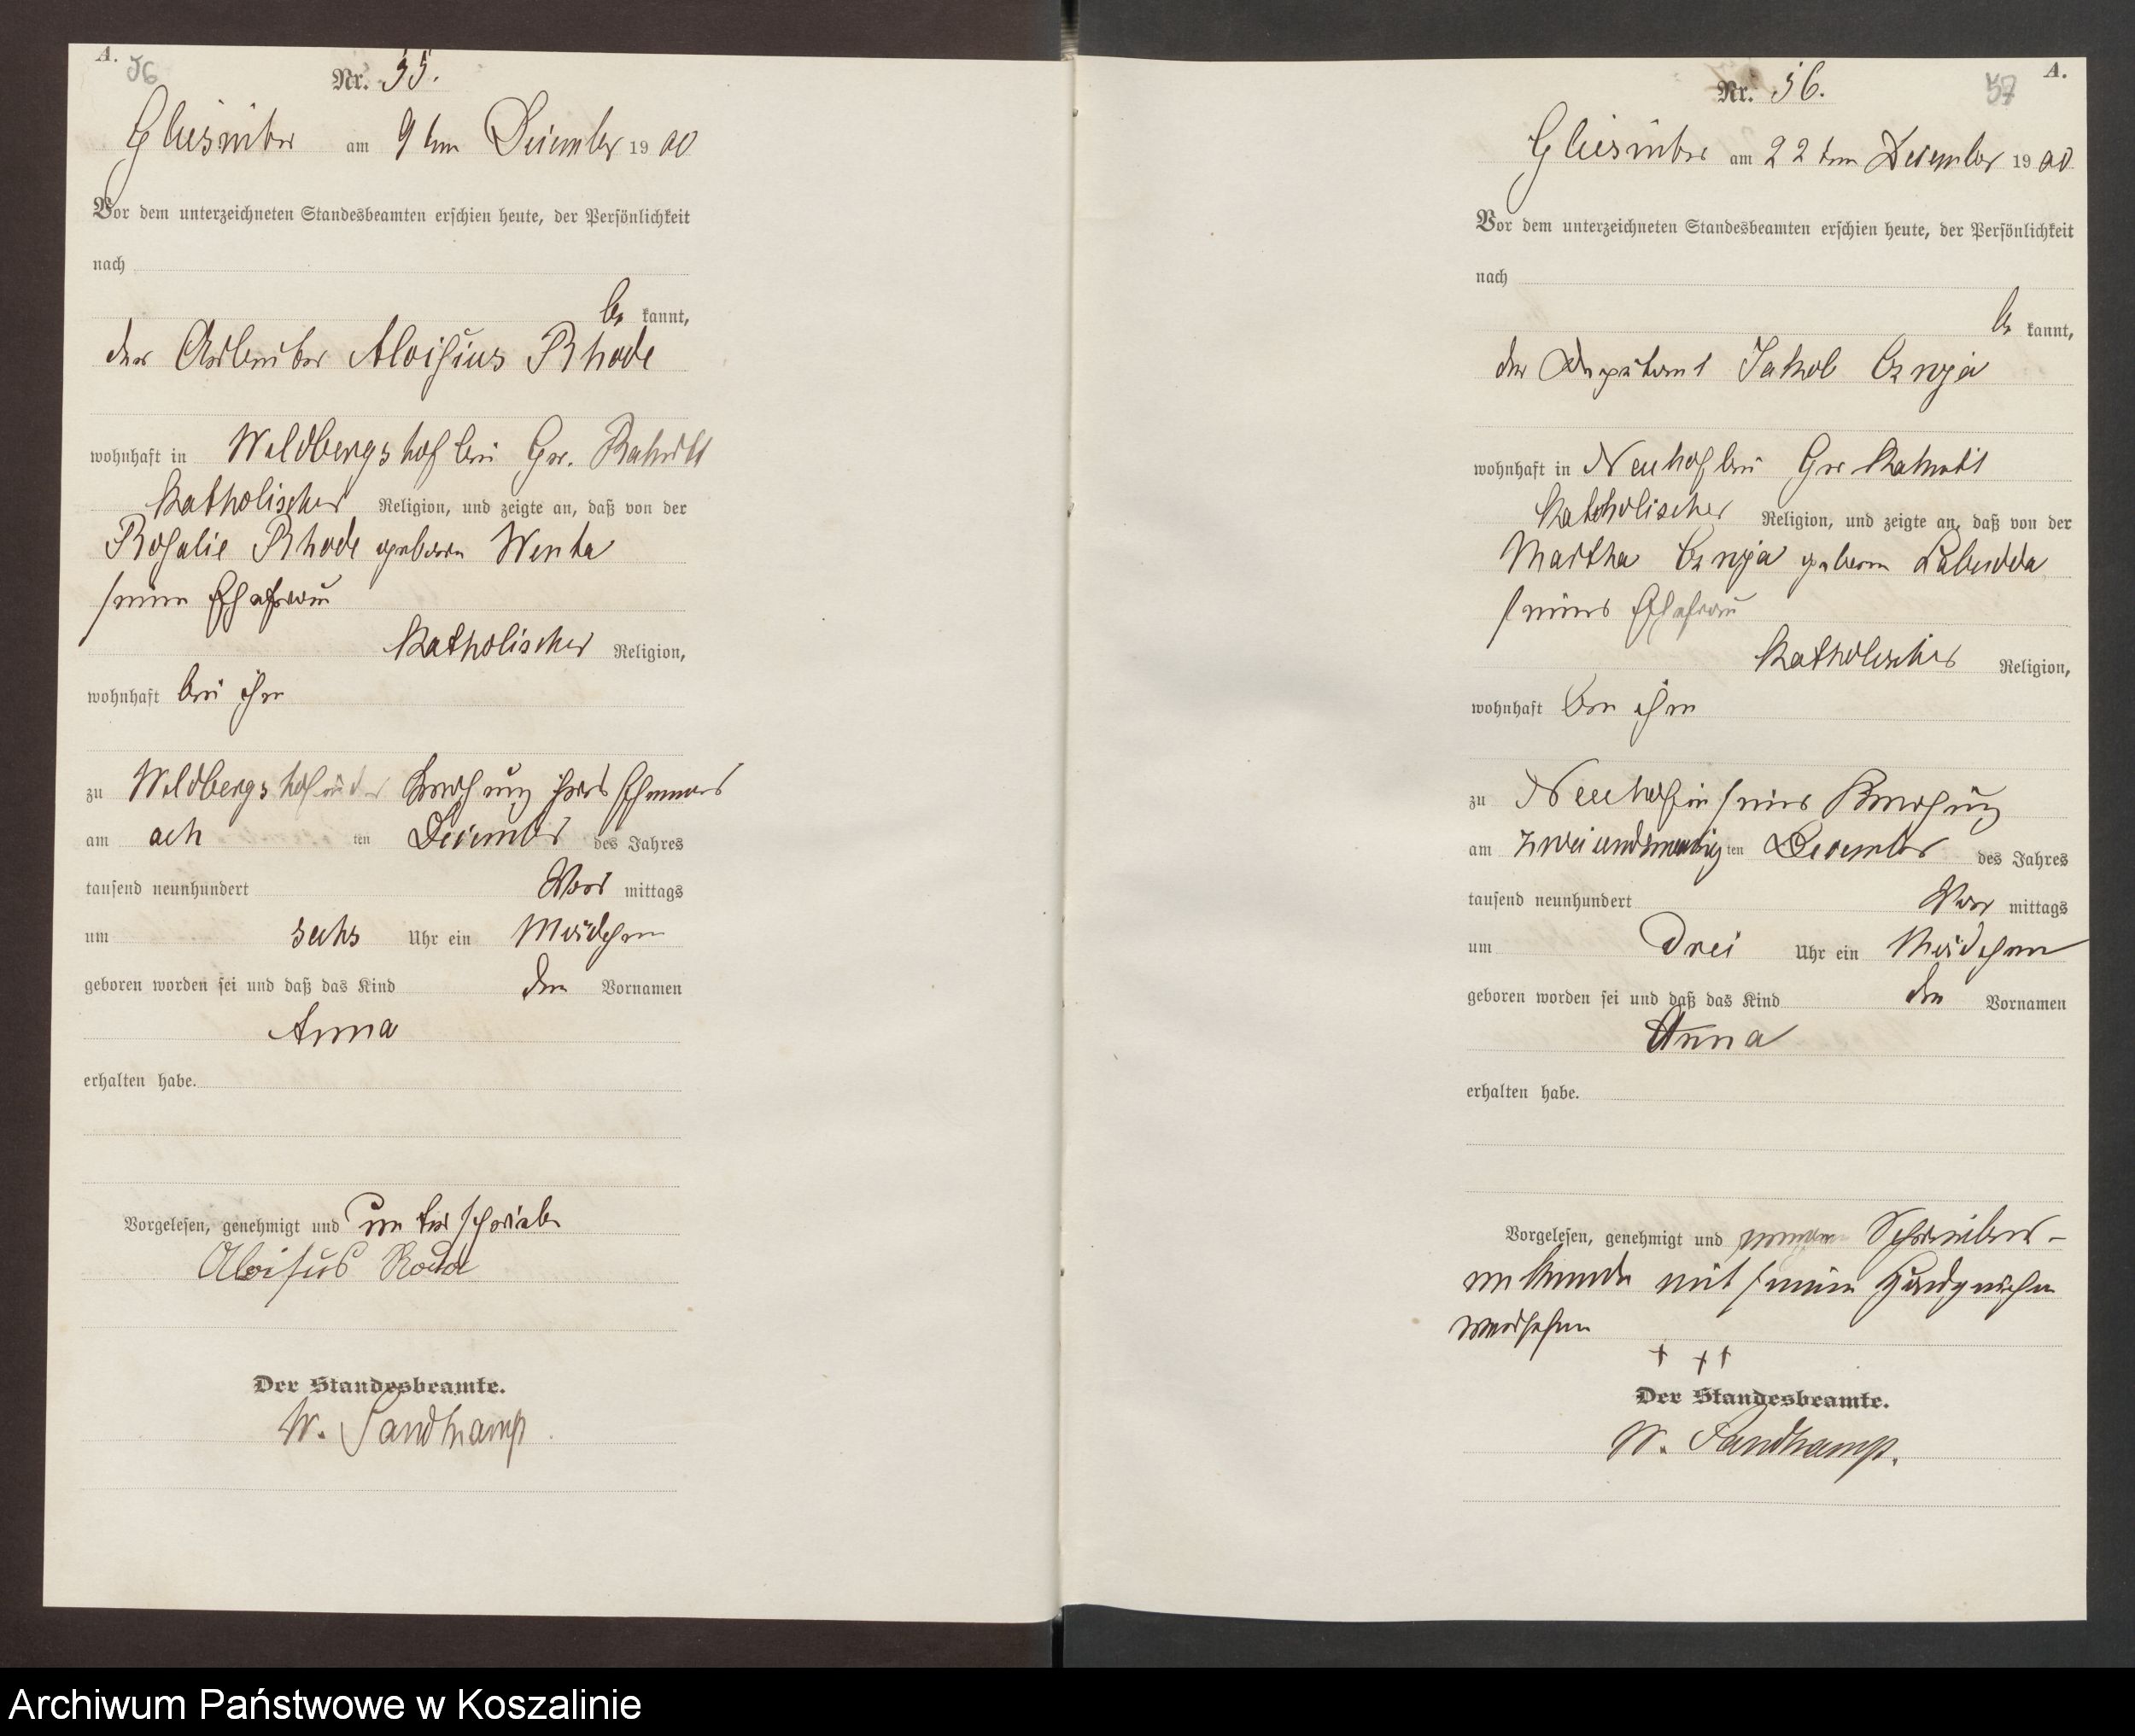 A.
56
Nr. 55.
Gliesnitz am 9ten Dezember 1900
Vor dem unterzeichneten Standesbeamten erschien heute, der Persönlichkeit
nach
be kannt,
der Arbeiter Aloisius Rhode
wohnhaft in Wildbergshof bei Gr.
katholischer Religion, und zeigte an, daß von der
Rosalie Rhode geborn Wenta
seiner Ehefrau
katholischer Religion,
wohnhaft bei ihm
zu Wildbergshof in der Wohnung ihres Ehemanns
am ach ten Dezember des Jahres
tausend neunhundert Vor mittags
um sechs Uhr ein Mädchen
geboren worden sei und daß das Kind den Vornamen
Anna
erhalten habe.
Vorgelesen, genehmigt und unterschrieben
Aloisius
Der Standesbeamte.
W. Sandkamp
A.
57
Nr. 56.
Gliesnitz am 22ten Dezember 1900
Vor dem unterzeichneten Standesbeamten erschien heute, der Persönlichkeit
nach
be kannt,
der Deputant Jakob Czroja
wohnhaft in Neuhof bei Gr
katholischer Religion, und zeigte an, daß von der
Martha Czroja geborn Labudda
seiner Ehefrau
katholischer Religion,
wohnhaft bei ihm
zu Neuhof in seiner Wohnung
am zweiundzwanzig ten Dezember des Jahres
tausend neunhundert Vor mittags
um drei Uhr ein Mädchen
geboren worden sei und daß das Kind den Vornamen
Anna
erhalten habe.
Vorgelesen, genehmigt und wegen Schreibens-
unkunde mit seinem Handzeichen
versehen
+ + +
Der Standesbeamte.
W. Sandkamp.
Archiwum Państwowe w Koszalinie